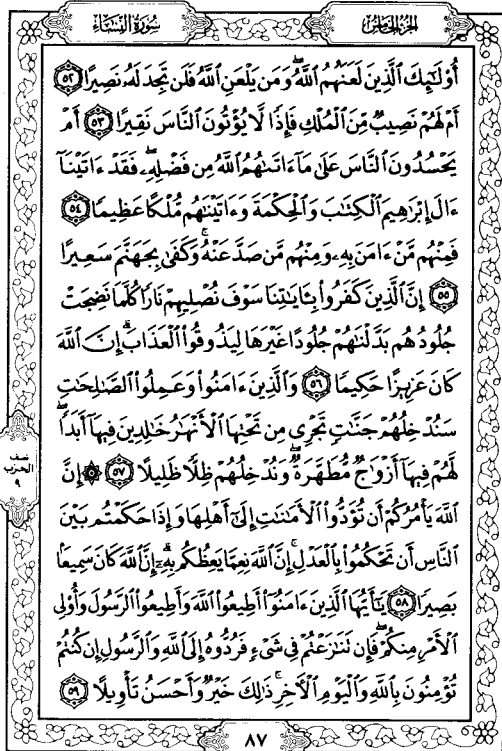 سُورَةُ النِّسَاءِ
الجُزْءُ الخَامِسُ
أُو۟لَٰٓئِكَ ٱلَّذِينَ لَعَنَهُمُ ٱللَّهُ وَمَن يَلْعَنِ ٱللَّهُ فَلَن تَجِدَ لَهُۥ نَصِيرًا ٥٢
أَمْ لَهُمْ نَصِيبٌ مِّنَ ٱلْمُلْكِ فَإِذًا لَّا يُؤْتُونَ ٱلنَّاسَ نَقِيرًا ٥٣ أَمْ
يَحْسُدُونَ ٱلنَّاسَ عَلَىٰ مَآ ءَاتَىٰهُمُ ٱللَّهُ مِن فَضْلِهِۦ ۖ فَقَدْ ءَاتَيْنَآ
ءَالَ إِبْرَٰهِيمَ ٱلْكِتَٰبَ وَٱلْحِكْمَةَ وَءَاتَيْنَٰهُم مُّلْكًا عَظِيمًا ٥٤
فَمِنْهُم مَّنْ ءَامَنَ بِهِۦ وَمِنْهُم مَّن صَدَّ عَنْهُ ۚ وَكَفَىٰ بِجَهَنَّمَ سَعِيرًا
٥٥ إِنَّ ٱلَّذِينَ كَفَرُوا۟ بِـَٔايَٰتِنَا سَوْفَ نُصْلِيهِمْ نَارًا كُلَّمَا نَضِجَتْ
جُلُودُهُم بَدَّلْنَٰهُمْ جُلُودًا غَيْرَهَا لِيَذُوقُوا۟ ٱلْعَذَابَ ۗ إِنَّ ٱللَّهَ
كَانَ عَزِيزًا حَكِيمًا ٥٦ وَٱلَّذِينَ ءَامَنُوا۟ وَعَمِلُوا۟ ٱلصَّٰلِحَٰتِ
سَنُدْخِلُهُمْ جَنَّٰتٍ تَجْرِى مِن تَحْتِهَا ٱلْأَنْهَٰرُ خَٰلِدِينَ فِيهَآ أَبَدًا ۖ
لَّهُمْ فِيهَآ أَزْوَٰجٌ مُّطَهَّرَةٌ ۖ وَنُدْخِلُهُمْ ظِلًّا ظَلِيلًا ٥٧ ۞ إِنَّ
ٱللَّهَ يَأْمُرُكُمْ أَن تُؤَدُّوا۟ ٱلْأَمَٰنَٰتِ إِلَىٰٓ أَهْلِهَا وَإِذَا حَكَمْتُم بَيْنَ
ٱلنَّاسِ أَن تَحْكُمُوا۟ بِٱلْعَدْلِ ۚ إِنَّ ٱللَّهَ نِعِمَّا يَعِظُكُم بِهِۦٓ ۗ إِنَّ ٱللَّهَ كَانَ سَمِيعًۢا
بَصِيرًا ٥٨ يَٰٓأَيُّهَا ٱلَّذِينَ ءَامَنُوٓا۟ أَطِيعُوا۟ ٱللَّهَ وَأَطِيعُوا۟ ٱلرَّسُولَ وَأُو۟لِى
ٱلْأَمْرِ مِنكُمْ ۖ فَإِن تَنَٰزَعْتُمْ فِى شَىْءٍ فَرُدُّوهُ إِلَى ٱللَّهِ وَٱلرَّسُولِ إِن كُنتُمْ
تُؤْمِنُونَ بِٱللَّهِ وَٱلْيَوْمِ ٱلْءَاخِرِ ۚ ذَٰلِكَ خَيْرٌ وَأَحْسَنُ تَأْوِيلًا ٥٩
نصف
الحزب
٩
٨٧